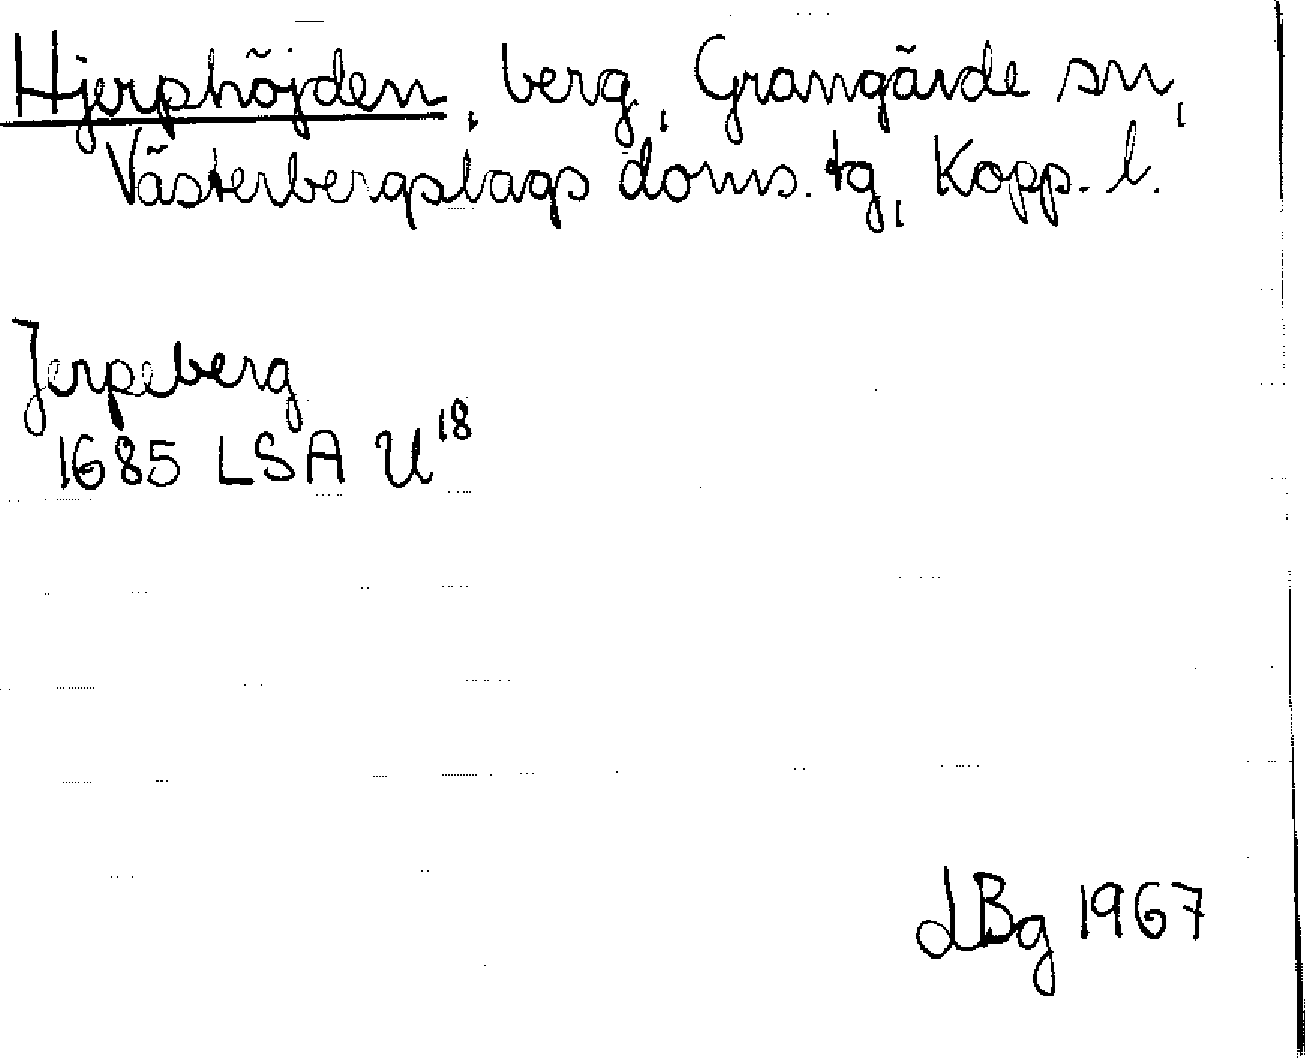 Hjerphöjden, berg, Grangärde sn,
Västerbergslags doms. tg, Kopp. l.
Jerpeberg
1685 LSA U¹⁸
LBg 1967